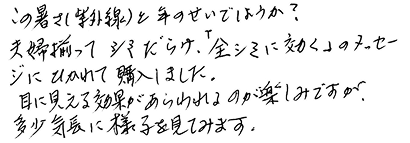 この暑さ(紫外線)と年のせいでしょうか?
夫婦揃ってシミだらけ、「全シミに効く」のメッセー
ジにひかれて購入しました。
目に見える効果があらわれるのが楽しみですが、
多少気長に様子を見てみます。